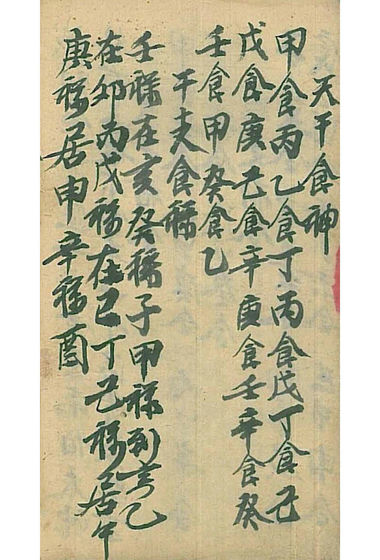 天干食神
甲食丙乙食丁丙食戊丁食己
戊食庚己食辛庚食壬辛食癸
壬食甲癸食乙
干支食禄
壬禄在亥癸禄子甲禄到寅乙
在卯丙戊禄在巳丁己禄居午
庚禄居申辛禄酉